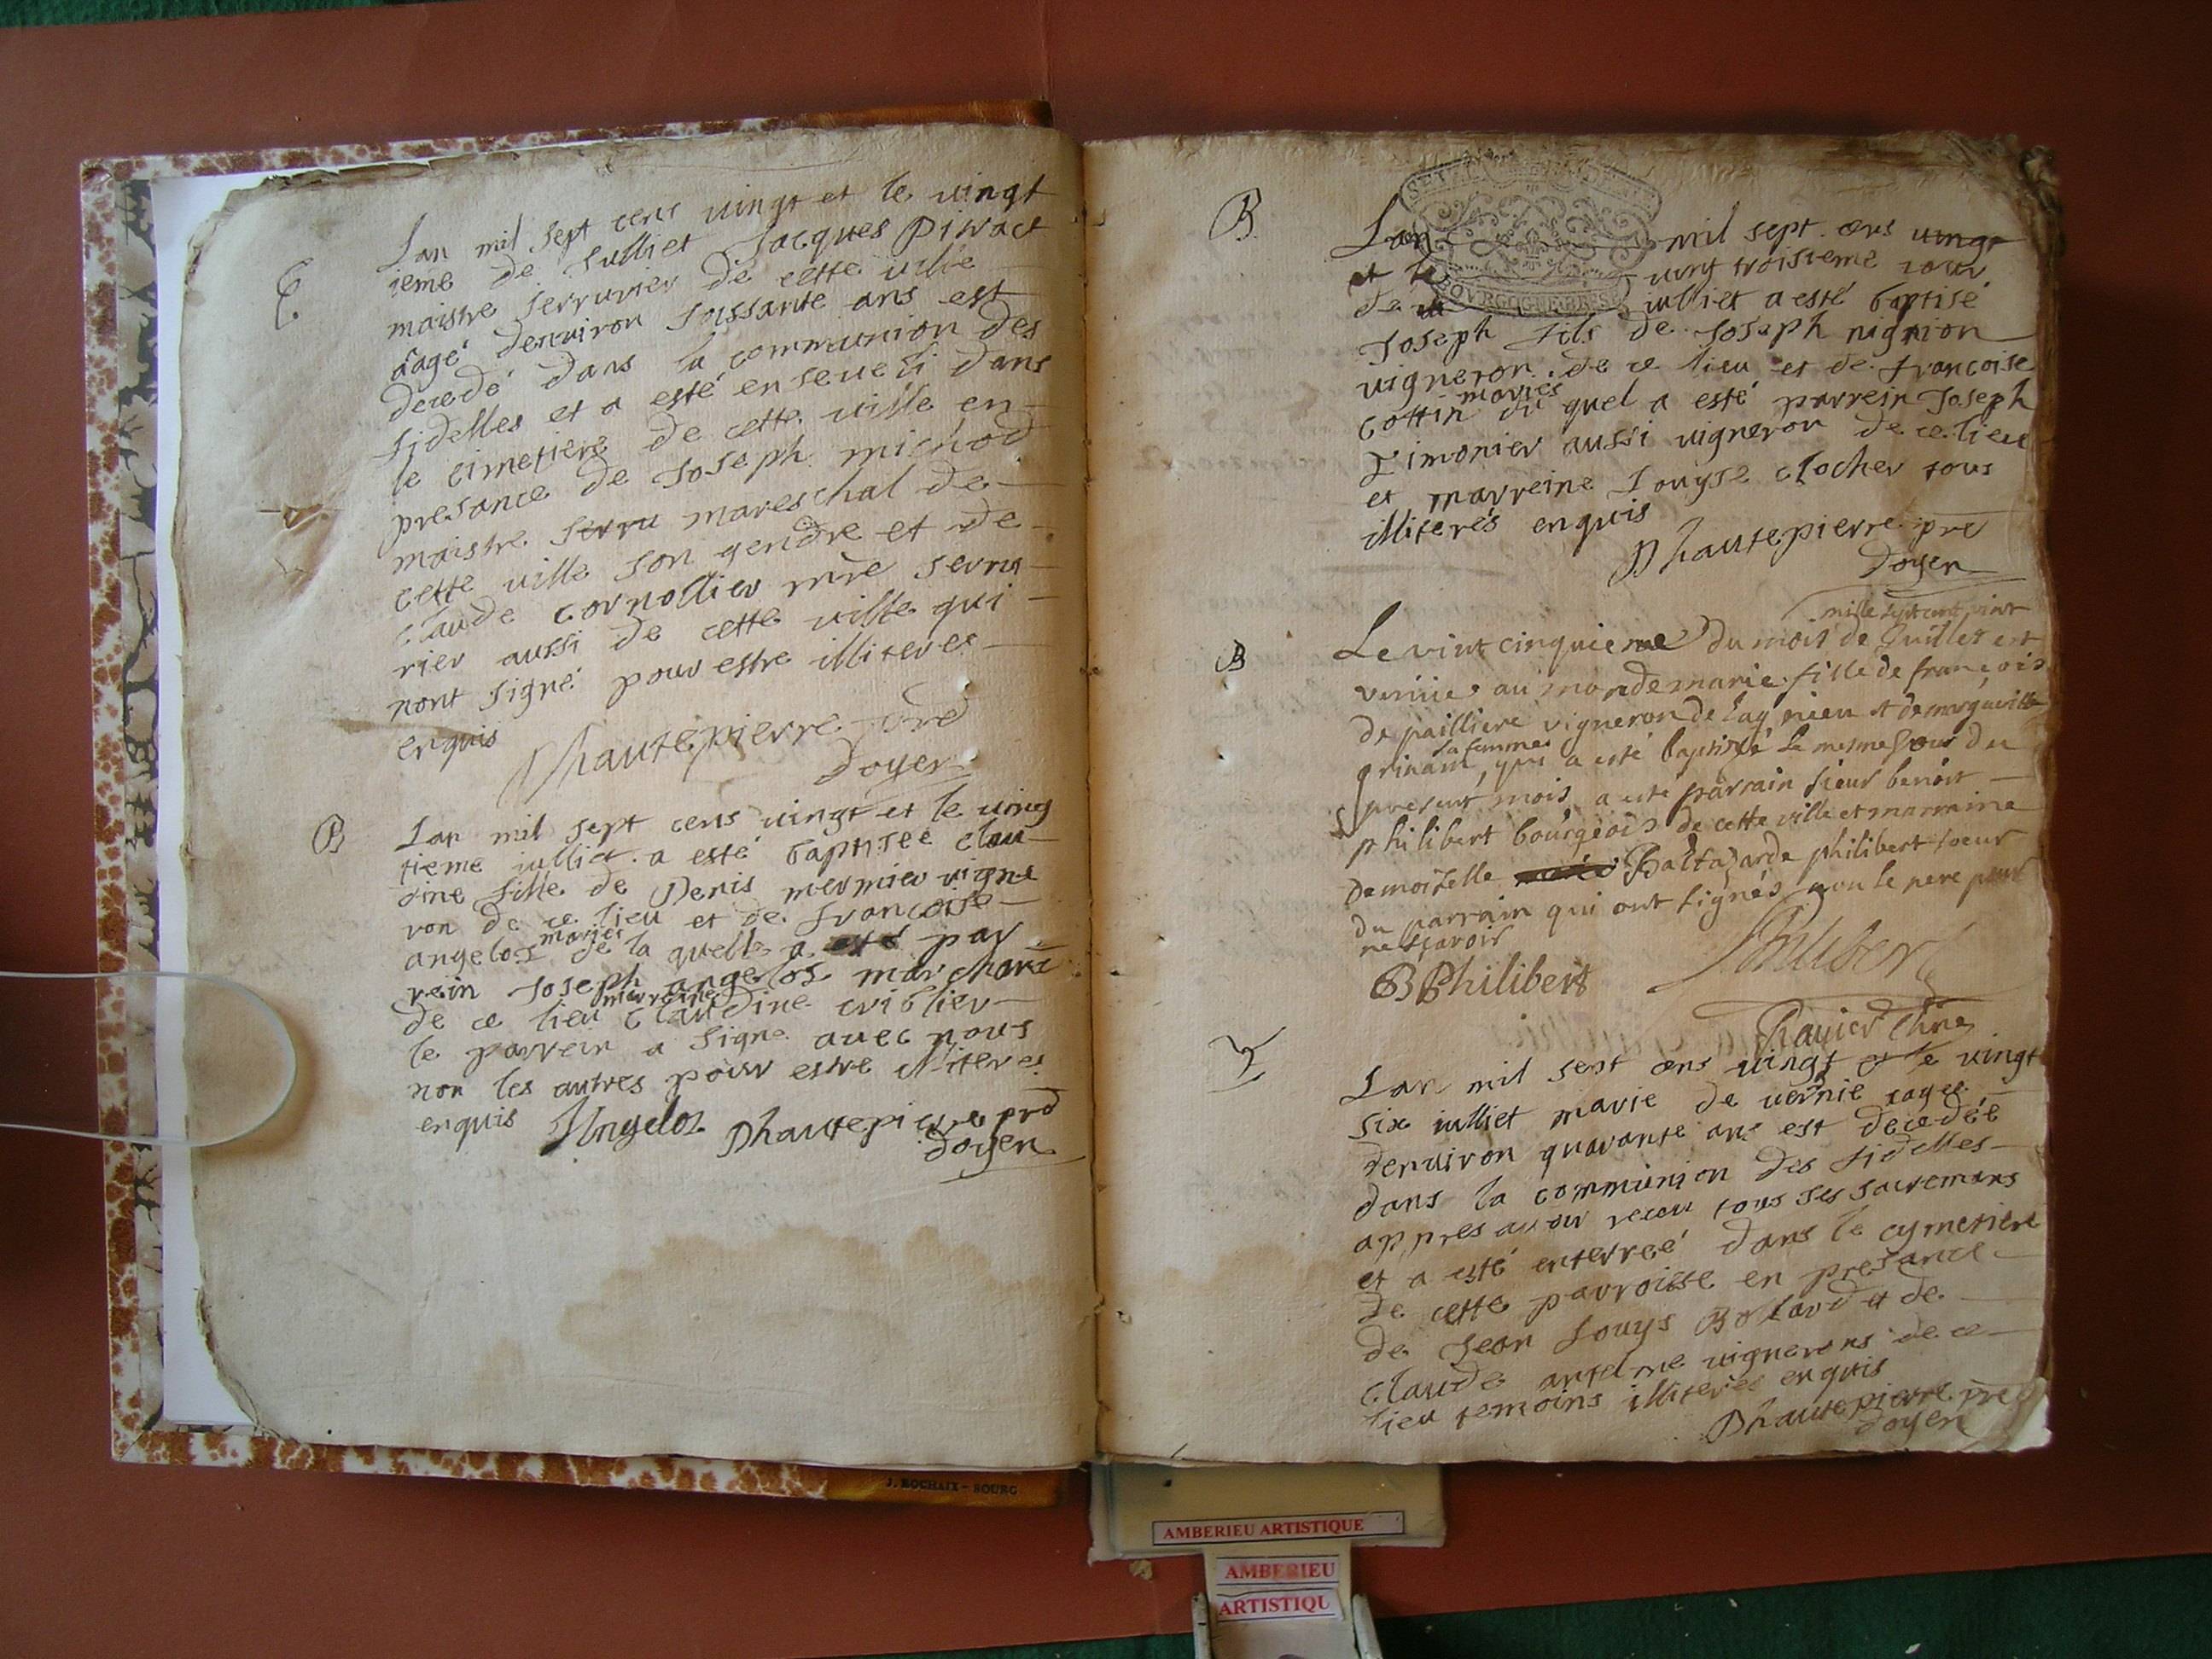 E.
Lan mil sept cens vingt et le vingt
ieme de Julliet Jacques Pivact
maistre serrurier de cette ville
aagé denviron soissante ans est
decedé dans la communion des
fidelles et a esté enseveli dans
le cimetiere de cette ville en
presance de Joseph michod
maistre serru mareschal de
cette ville son gendre et de
claude cornollier mre serru
rier aussi de cette ville qui
nont signé pour estre illiteres
enquis
Dhautepierre pre
doyen
B
Lan mil sept cens vingt et le ving
tieme julliet a esté baptisee clau
dine fille de Denis mermier vigne
ron de ce lieu et de francoise
angelot mariés de la quelle a esté par
rein Joseph angelot marchant
de ce lieu marreine Claudine criblier
le parrein a signe avec nous
non les autres pour estre illiteres
enquis Angelot Dhautepierre pre
doyen
B
Lan mil sept cens vingt
et le vint troisieme jour
de julliet a esté baptisé
Joseph fils de Joseph nignion
vigneron de ce lieu et de francoise
cottin mariés du quel a esté parrein Joseph
Timonier aussi vigneron de ce lieu
et marreine Louyse clocher tous
illiterés enquis
Dhautepierre pre
doyen
B
mille sept cent vint
Le vint cinquieme du mois de Juillet est
venüe au monde marie fille de françois
de pailliere vigneron de Lagnieu et de marguerite
grinand sa femme, qui a esté baptisé le mesme jour du
present mois, a esté parrain sieur benoit
philibert bourgeois de cette ville et marraine
demoiselle Baltazarde philibert soeur
du parrain qui ont signés, non le pere pour
ne sçavoir
BPhilibert Philibert
Ravier
Lan mil sept cens vingt et le vingt
six julliet marie de vernie aagee
denviron quarante ans est decedée
dans la communion des fidelles
appres avoir receu tous ses sacremans
et a esté enterreé dans le cymetiere
de cette parroisse en presance
de Jean Louys Bollard et de
Claude antelme vignerons de ce
lieu temoins illiteres enquis
Dhautepierre pre
doyen
J. ROCHAIX - BOURG
AMBERIEU ARTISTIQUE
AMBERIEU
ARTISTIQU